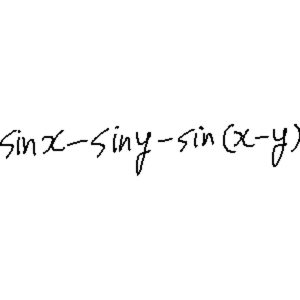 sin x - sin y - sin (x - y)